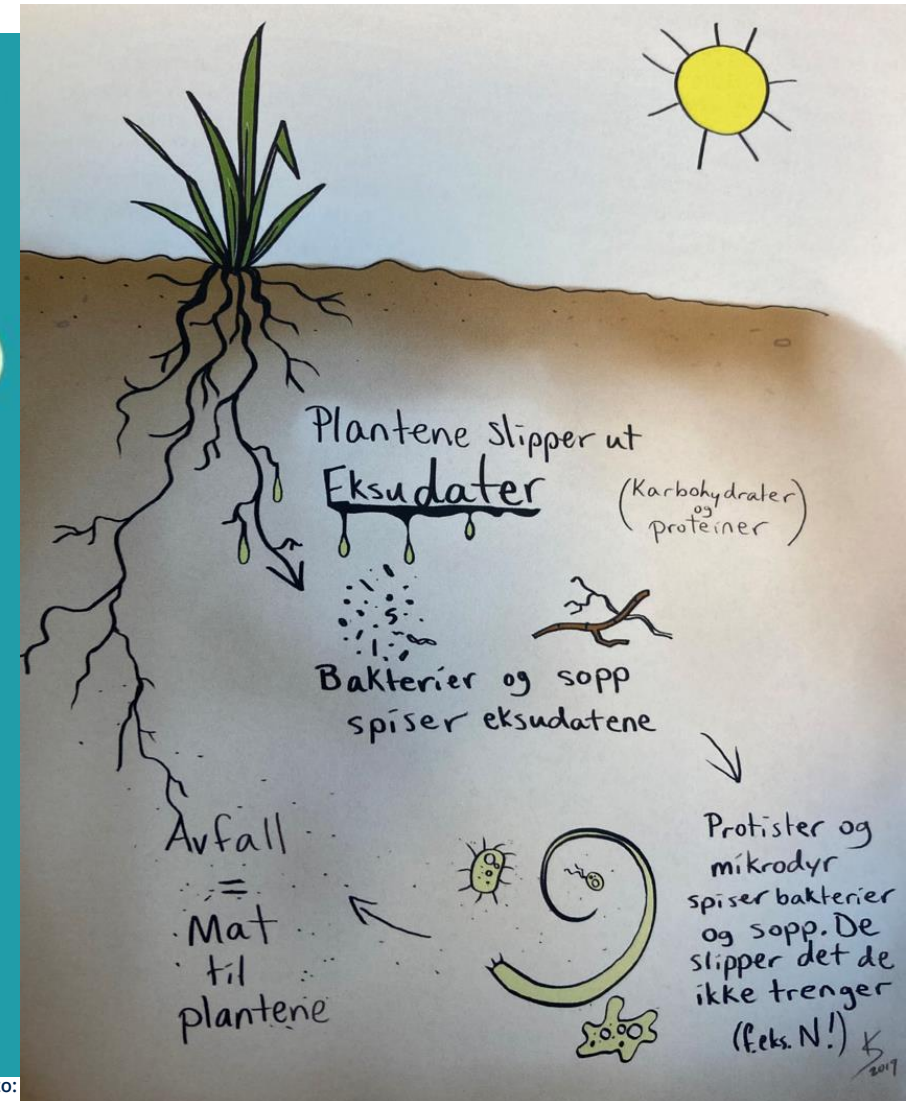 Plantene slipper ut
Eksudater
(Karbohydrater
og
proteiner)
Bakterier og sopp
spiser eksudatene
Protister og
mikrodyr
spiser bakterier
og sopp. De
slipper det de
ikke trenger
(f.eks. N!)
Avfall
=
Mat
til
plantene
2019
to: